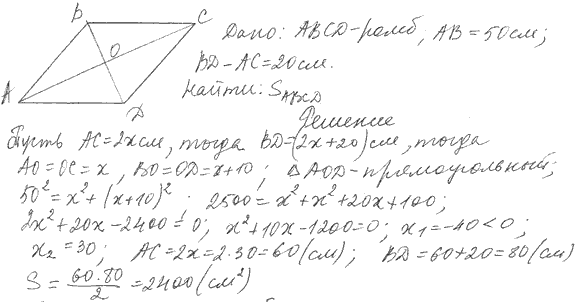 B C
Дано: ABCD-ромб, AB=50см;
O
BD-AC=20см.
A
Найти: S_ABCD
D
Решение
Пусть AC=2x см, тогда BD=(2x+20) см, тогда
AO=OC=x, BO=OD=x+10; △AOD-прямоугольный;
50²=x²+(x+10)²; 2500=x²+x²+20x+100;
2x²+20x-2400=0; x²+10x-1200=0; x₁=-40<0;
x₂=30; AC=2x=2·30=60(см); BD=60+20=80(см)
S=60·80/2=2400(см²)